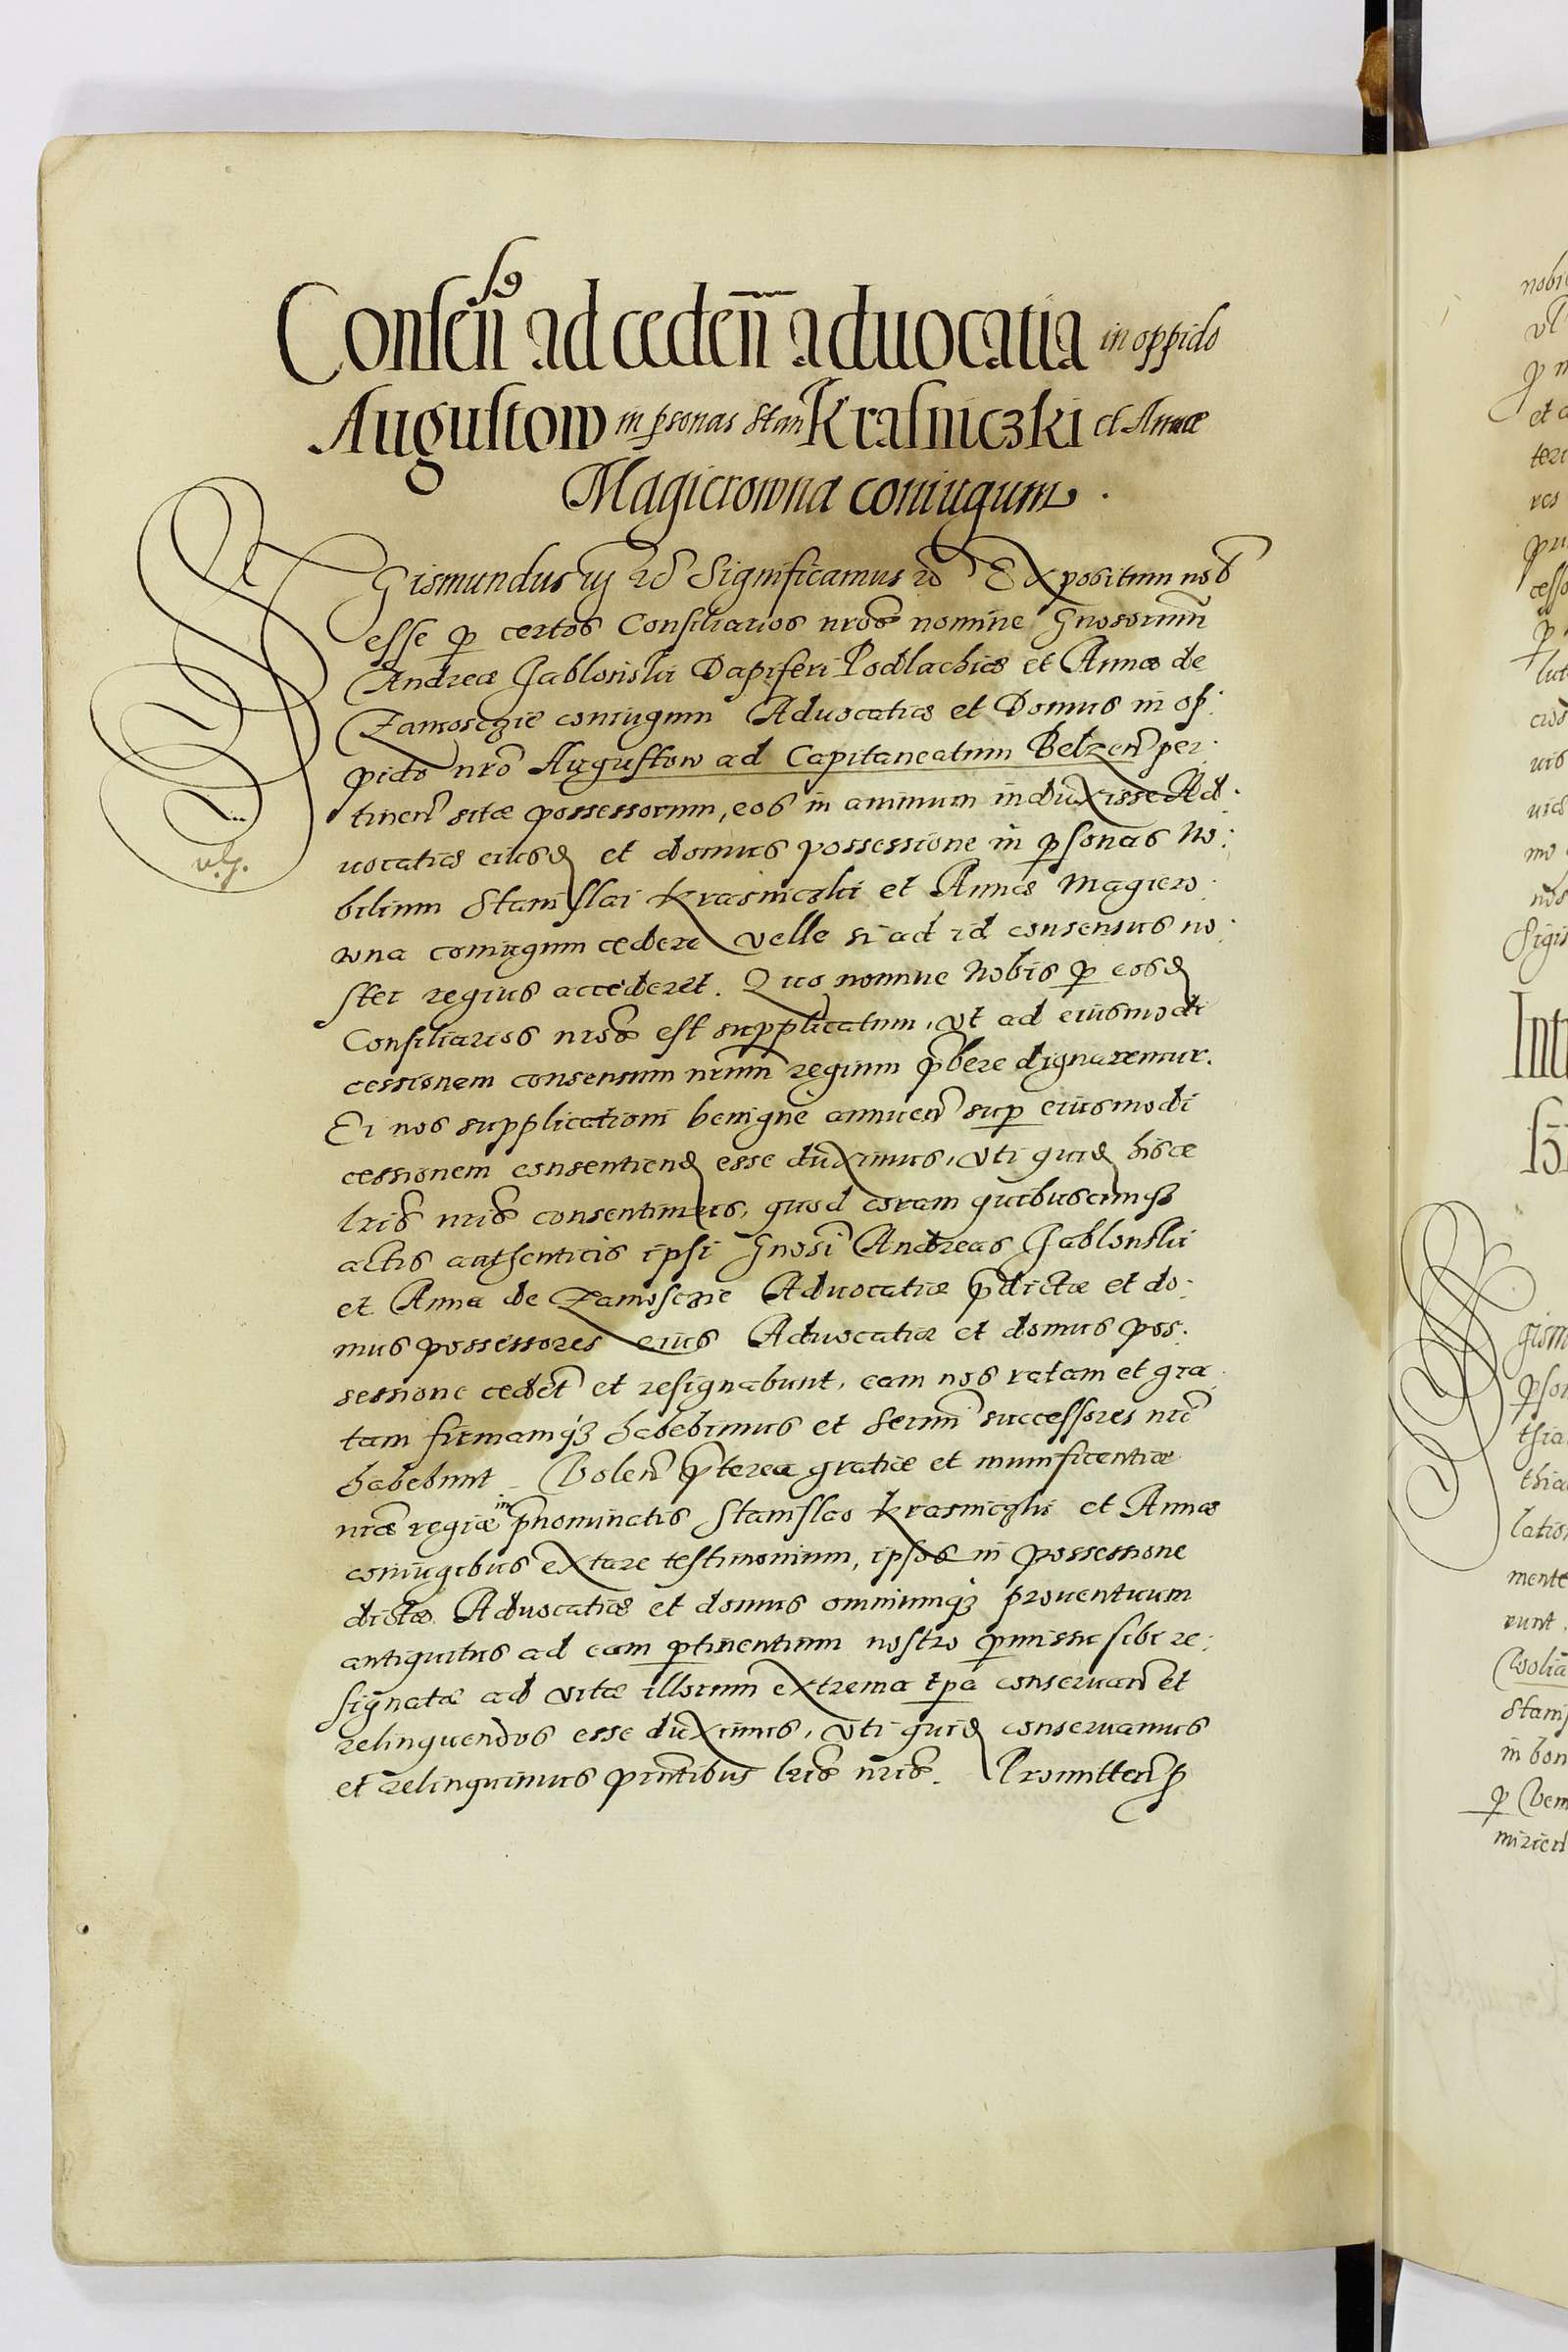 Consen̄s9 ad ceden̄ aduocatia in oppido
Augustow in psonas Stan̄ Krasniczki et Annæ
Magierowna coniugum.
Sigismundus iij etc̄ Significamus etc̄ Expositum nob̄
esse p certos Consiliarios nros̄ nomine Gnosorum̄
Andreæ Jablonski Dapiferi Podlachiæ et Annæ de
Zamosczie coniugum Aduocatiæ et Domus in op:
pido nrō Augustow ad Capitaneatum Belzen̄ per:
tinen̄ sitæ possessorum, eos in animum induxisse Ad:
uocatiæ eiusd et domus possessione in psonas No:
bilium Stanislai Krasniczki et Annæ Magiero:
wna coniugum cedere velle si ad id consensus no:
ster regius accederet. Quo nomine Nobis p eosd
Consiliarios nros̄ est supplicatum, vt ad eiusmodi
cessionem consensum nrum̄ regium p̄bere dignaremur.
Et nos supplicationi benigne annuen̄ sup eiusmodi
cessionem consentiend esse duximus, vti quid hisce
lris̄ nris̄ consentimus, quod coram quibuscunqȝ
actis authenticis ipsi Gnosi Andreas Jablonski
et Anna de Zamosczie Aduocatiæ p̄dictæ et do:
mus possessores eius Aduocatiæ et domus pos:
sessione cedēt et resignabunt, eam nos ratam et gra:
tam firmamqȝ habebimus et Sermī successores nrī
habebunt. Volen̄ p̄terea gratiæ et munificentiæ
nræ regiæ in p̄nominatis Stanislao Krasniczki et Annæ
coniugibus extare testimonium, ipsos in possessione
dictæ Aduocatiæ et domus omniumqȝ prouentuum
antiquitus ad eam ptinentium nostro pmissu sibi re:
signatæ ad vitæ illorum extrema tpa conseruan̄ et
relinquendos esse duximus, vti quid conseruamus
et relinquimus pn̄tibus lris̄ nris̄. Promitten̄ p
vlg.